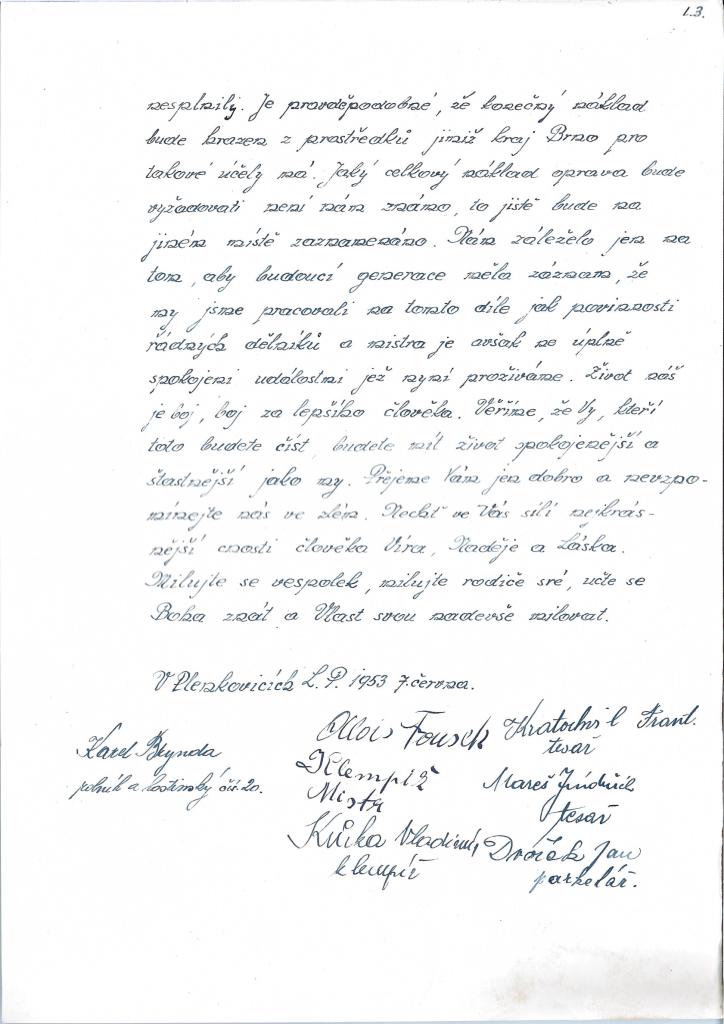 1.3.
nesplnily. Je pravděpodobné, že konečný náklad
bude hrazen z prostředků jimiž kraj Brno pro
takové účely má. Jaký celkový náklad oprava bude
vyžadovati není nám známo, to jistě bude na
jiném místě zaznamenáno. Nám záleželo jen na
tom, aby budoucí generace měla záznam, že
my jsme pracovali na tomto díle jak povinností
řádných dělníků a mistra je avšak ne úplně
spokojeni událostmi jež nyní prožíváme. Život náš
je boj, boj za lepšího člověka. Věříme, že Vy, kteří
toto budete číst, budete mít život spokojenější a
šťastnější jako my. Přejeme Vám jen dobro a nevzpo-
mínejte nás ve zlém. Nechť ve Vás sílí nejkrás-
nější cnosti člověka Víra, Naděje a Láska.
Milujte se vespolek, milujte rodiče své, učte se
Boha znát a Vlast svou nadevše milovat.
V Plenkovicích L. P. 1953 7. června.
Karel Brynda
rolník a hostinský čís. 20.
Alois Fousek
Klempíř
Mistr
Kůrka Vladimír
klempíř
Kratochvíl Frant.
tesař
Mareš Jindřich
tesař
Dvořák Jan